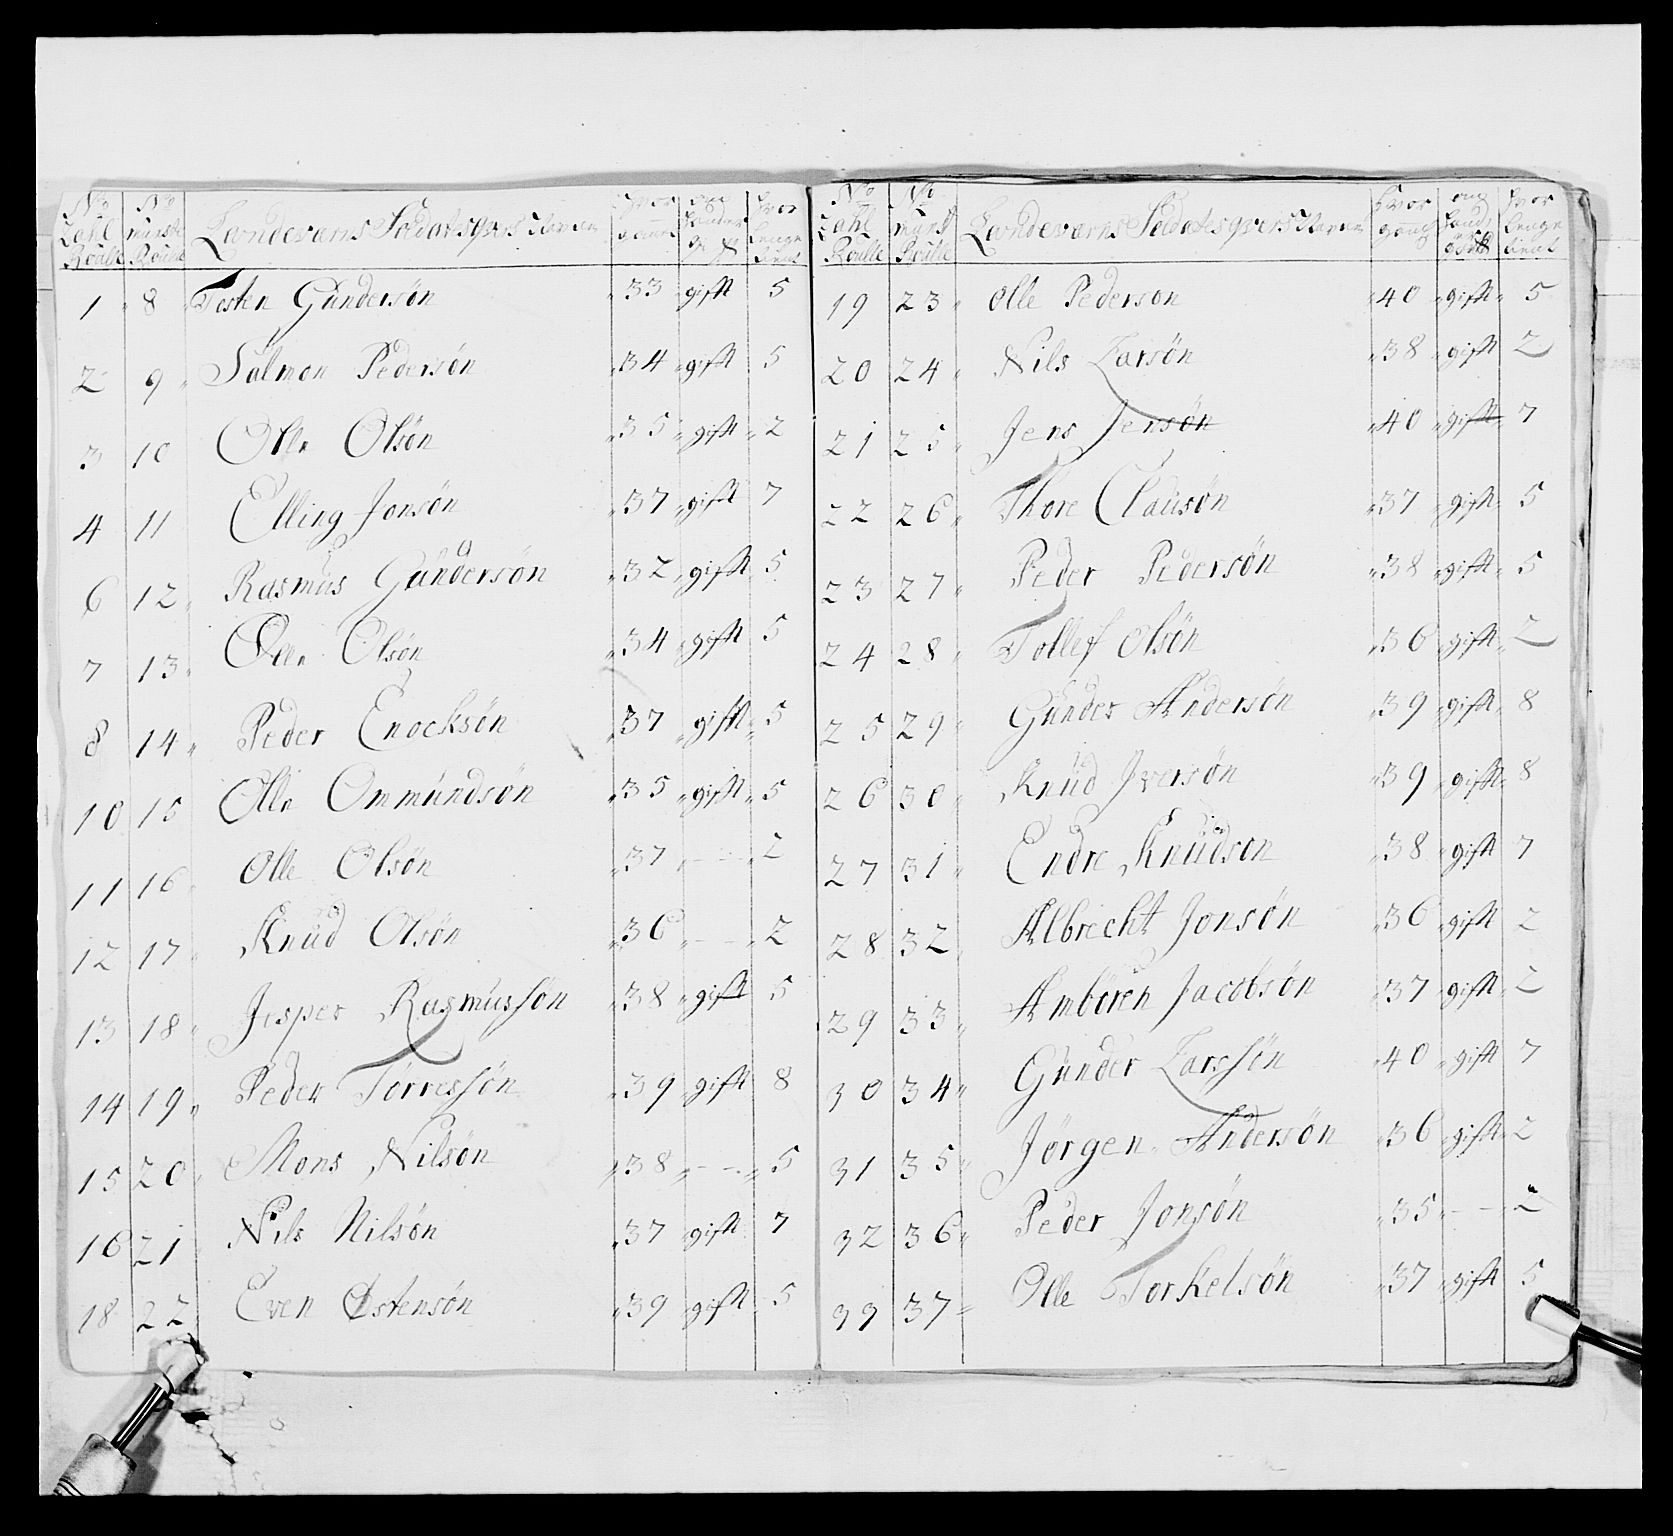 No No
Zahl munst Landeværns Soldaternes Navne Hvor om Hvor
Roulle Roulle
1 8 Tosten Gundersøn 33 gift 5
2 9 Salmon Pedersøn 34 gift 5
3 10 Olle Olsøn 35 gift 2
4 11 Elling Jonsøn 37 gift 7
6 12 Rasmus Gundersøn 32 gift 5
7 13 Olle Olsøn 34 gift 5
8 14 Peder Enocksøn 37 gift 5
10 15 Olle Ommundsøn 35 gift 5
11 16 Olle Olsøn 37 - - 2
12 17 Knud Olsøn 36 - - 2
13 18 Jesper Rasmussøn 38 gift 5
14 19 Peder Torressøn 39 gift 8
15 20 Mons Nilsøn 38 - - 5
16 21 Nils Nilsøn 37 gift 7
18 22 Even Østensøn 39 gift 5
No No
Zahl munst Landeværns Soldaternes Navne Hvor om Hvor
Roulle Roulle
19 23 Olle Pederson 40 gift 5
20 24 Nils Larsøn 38 gift 2
21 25 Jens Jensøn 40 gift 7
22 26 Thore Clausøn 37 gift 5
23 27 Peder Pedersøn 38 gift 5
24 28 Tollef Olsøn 36 gift 2
25 29 Gunder Andersøn 39 gift 8
26 30 Knud Iversøn 39 gift 8
27 31 Endre Knudson 38 gift 7
28 32 Albrecht Jonsøn 36 gift 2
29 33 Ambören Jacobsøn 37 gift 2
30 34 Gunder Larssøn 40 gift 7
31 35 Jørgen Andersøn 36 gift 2
32 36 Peder Jonsøn 35 - - 2
33 37 Olle Torkelsøn 37 gift 5